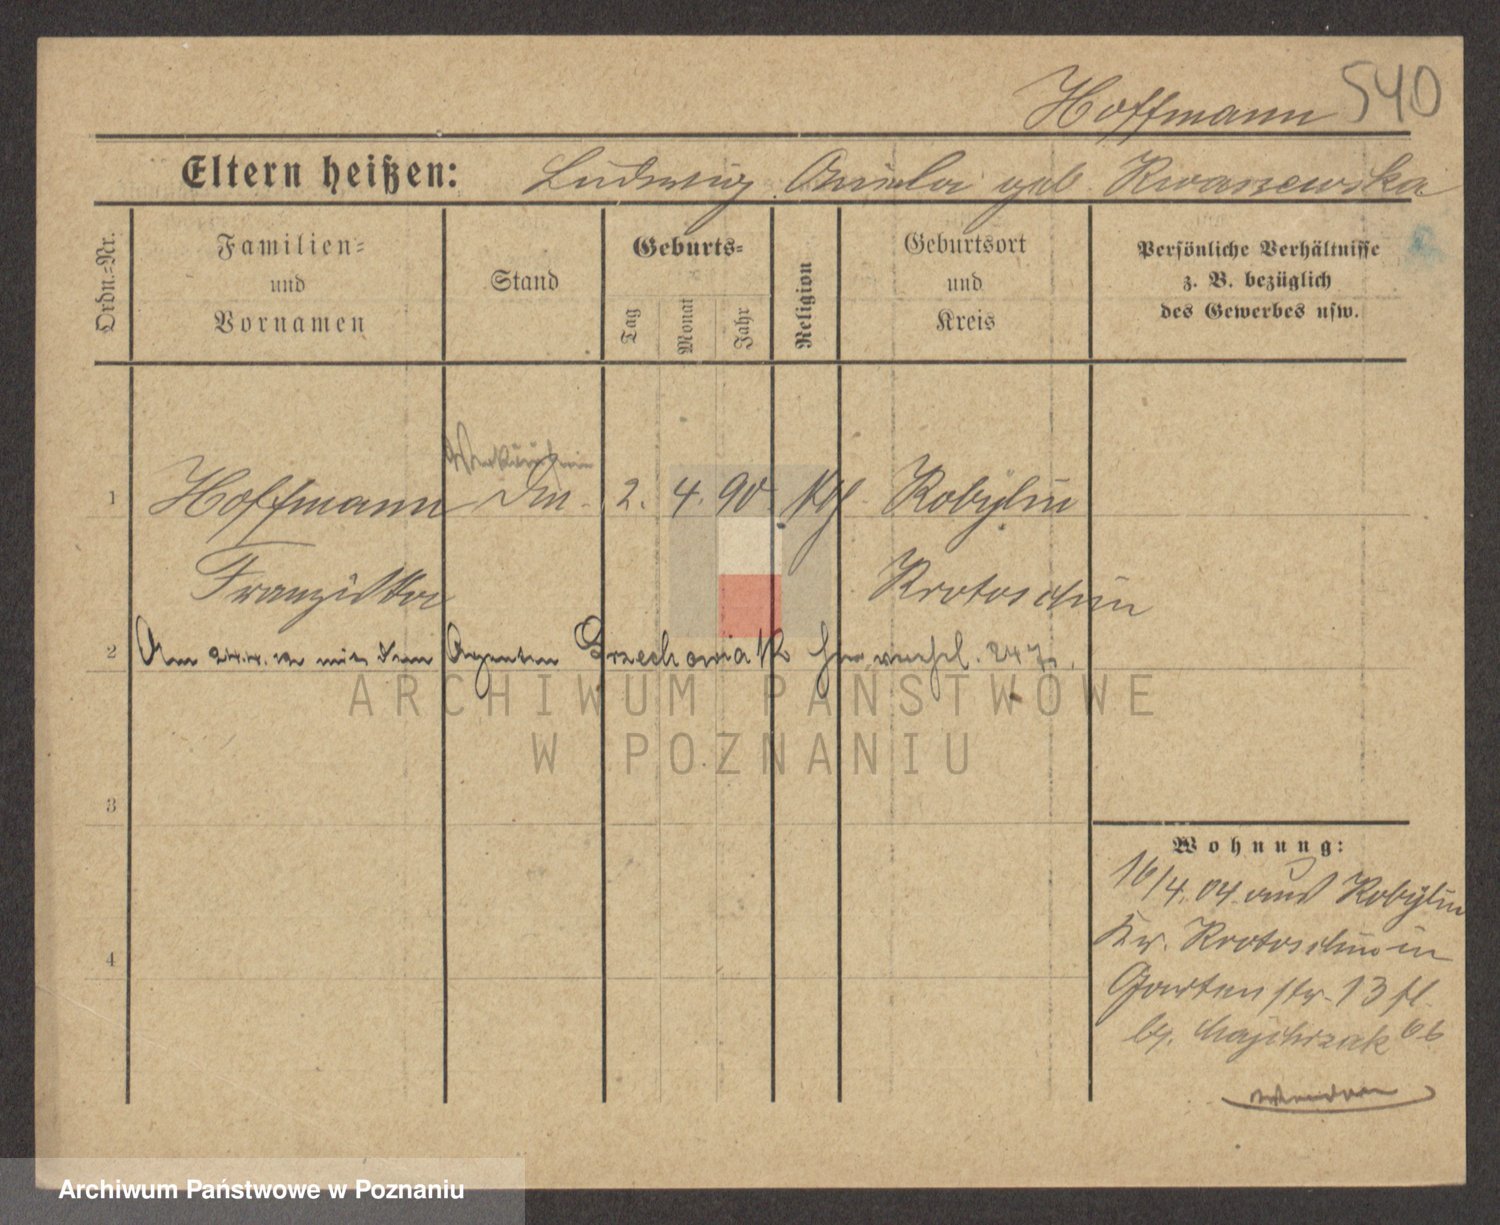 Hoffmann 540
Eltern heißen: Ludwig Aniela geb Kwaszewska
Ordn.=Nr.
Familien=
und
Vornamen
Stand
Geburts=
Tag
Monat
Jahr
Religion
Geburtsort
und
Kreis
Persönliche Verhältnisse
z. B. bezüglich
des Gewerbes usw.
Verkäuferin
1 Hoffmann Dm. 2. 4. 90. kth Kobylin
Franziska Krotoschin
2 Am 24.4. 12 mit dem Agenten Grzechowiak
ARCHIWUM PAŃSTWOWE
W POZNANIU
3
4
Wohnung:
16/4.04. aus Kobylin
Kr. Krotoschin in
Gartenstr. 13 fl.
by. Majchrzak
Archiwum Państwowe w Poznaniu